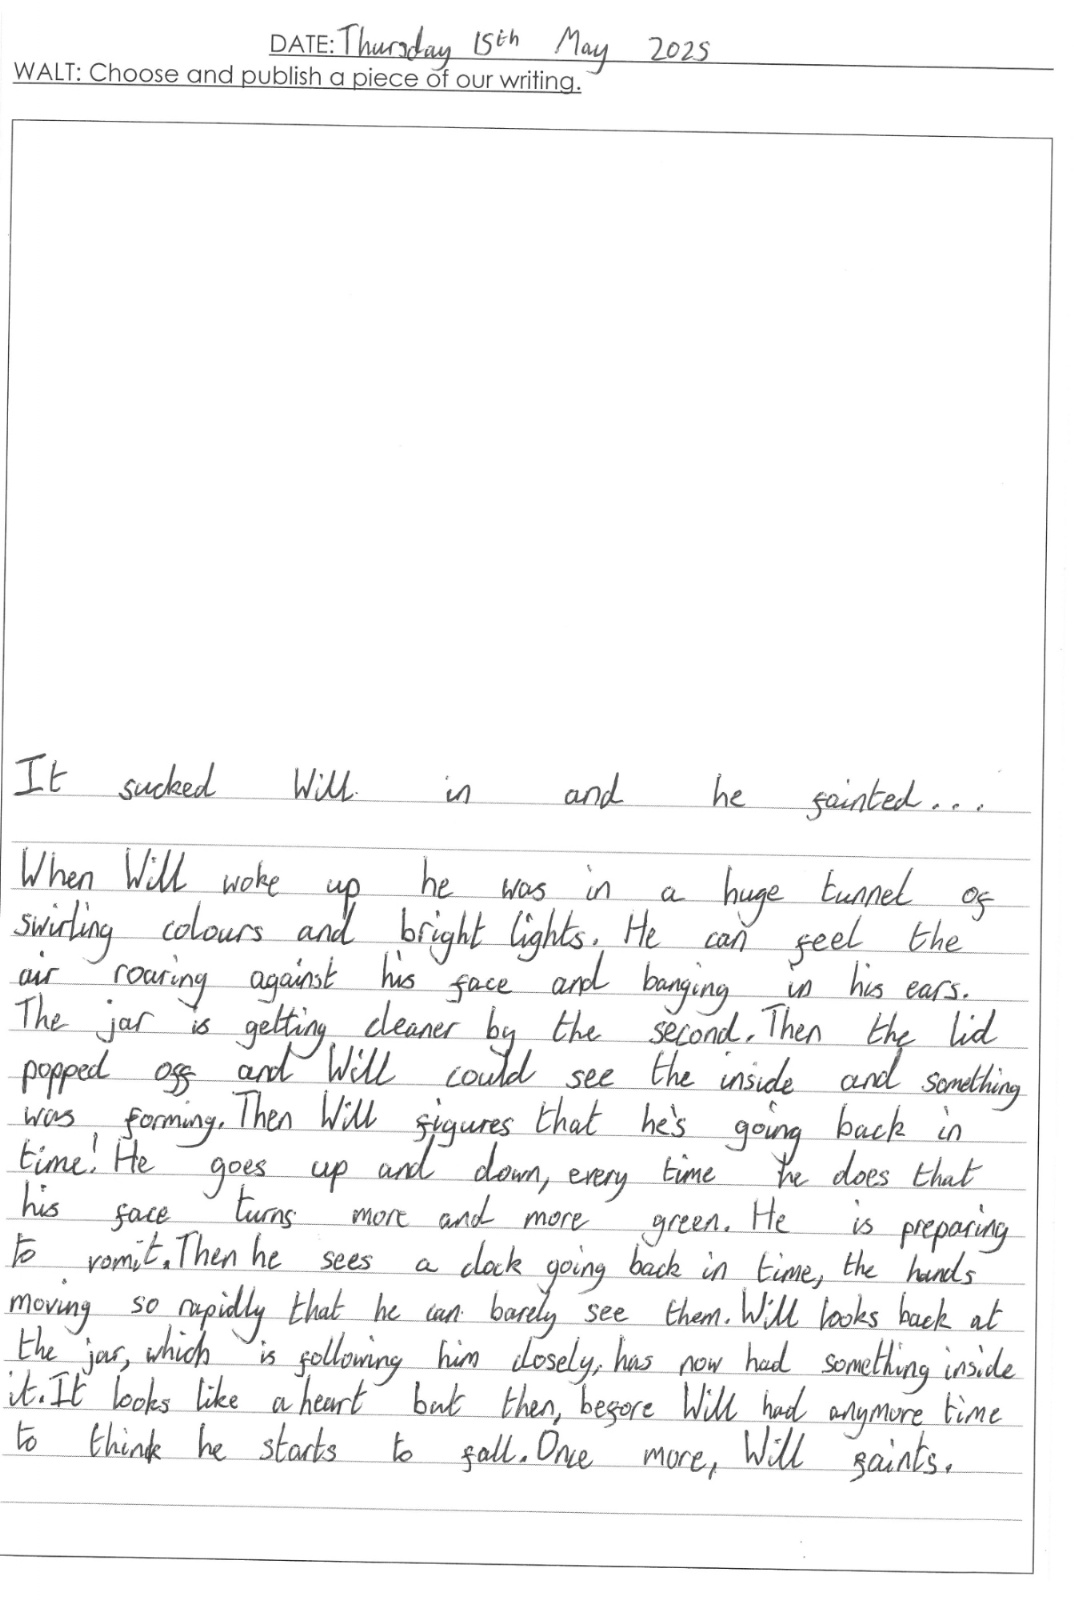 DATE: Thursday 15th May 2025
WALT: Choose and publish a piece of our writing.
It sucked Will in and he fainted...
When Will woke up he was in a huge tunnel of
swirling colours and bright lights. He can feel the
air roaring against his face and banging in his ears.
The jar is getting cleaner by the second. Then the lid
popped off and Will could see the inside and something
was forming. Then Will figures that he's going back in
time! He goes up and down, every time he does that
his face turns more and more green. He is preparing
to vomit. Then he sees a clock going back in time, the hands
moving so rapidly that he can barely see them. Will looks back at
the jar, which is following him closely, has now had something inside
it. It looks like a heart but then, before Will had anymore time
to think he starts to fall. Once more, Will faints.